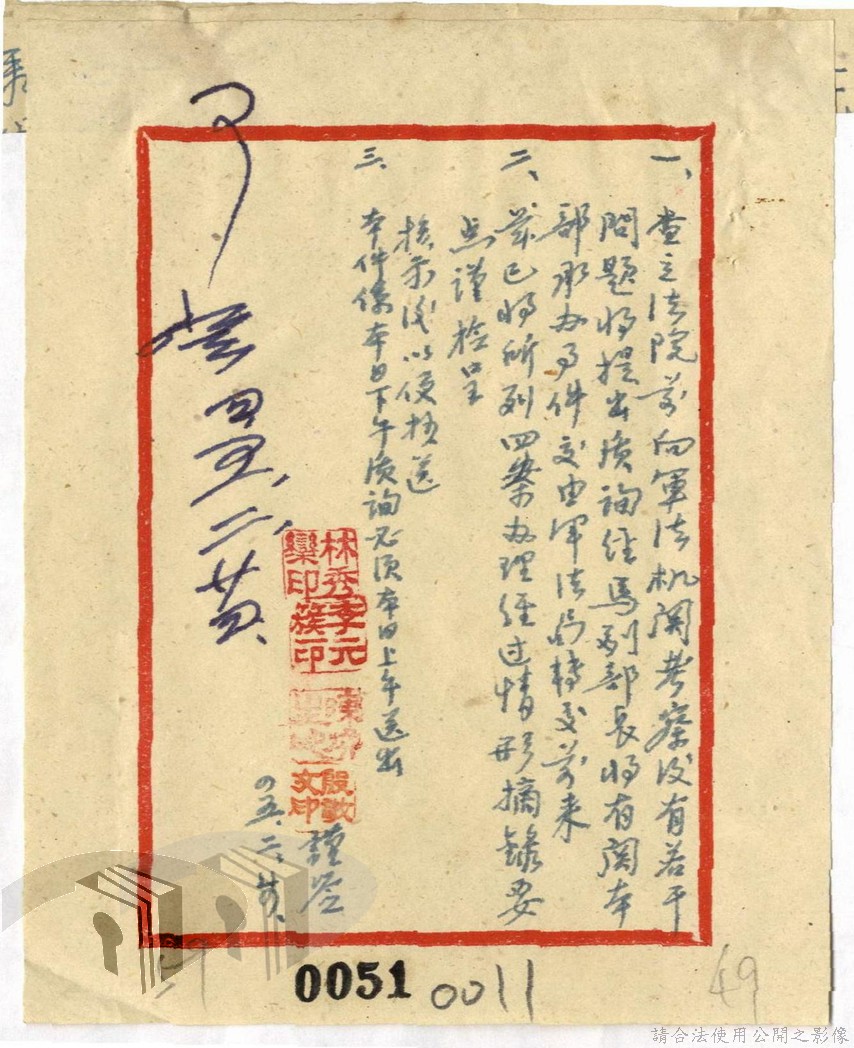 一、查立法院前向軍法机関考察後有若干
問題將提出質詢經馬副部長將有関本
部承办事件交由軍法局轉交前来
二、茲已將所列四案办理經过情形摘錄要
点謹檢呈
核示後以便核送
三、本件係本日下午質詢必須本日上午送出
林秀欒印
季元簇印
殷敬文印
謹签
四五、二、廿
四五、二、廿
0051
0011
49
請合法使用公開之影像